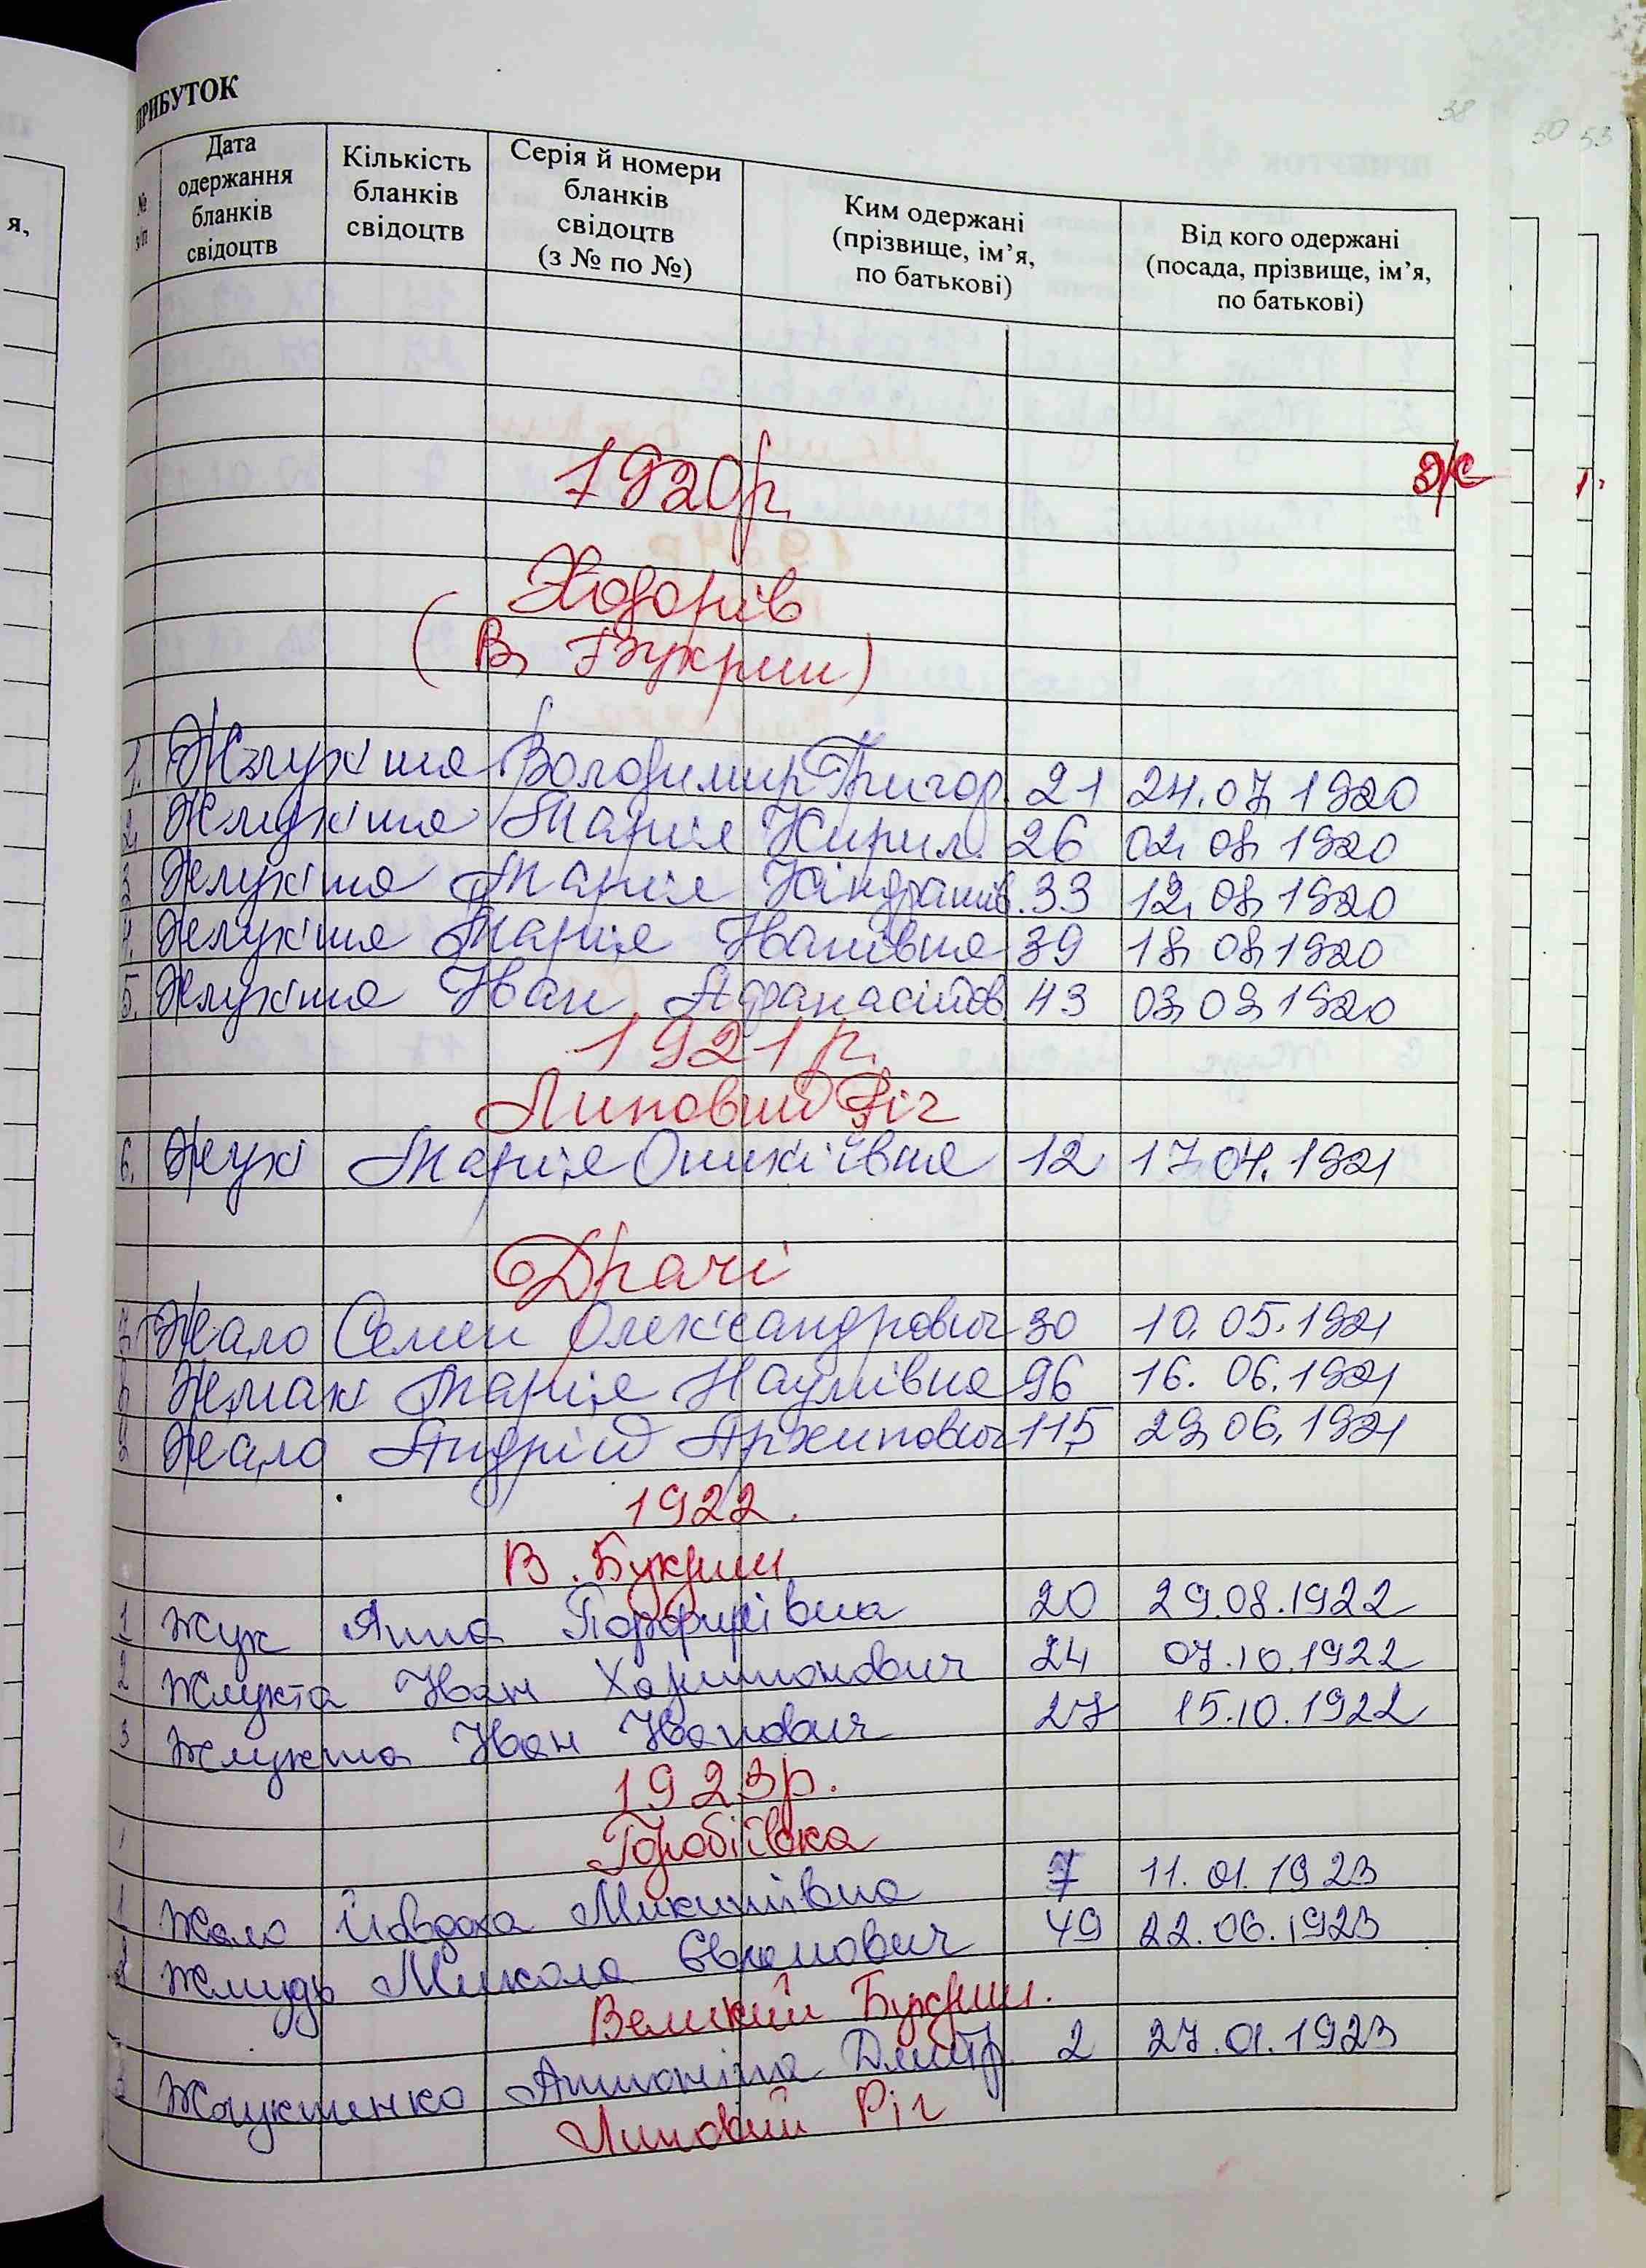 38
50 53
ПРИБУТОК
я,
№ з/п
Дата одержання бланків свідоцтв
Кількість бланків свідоцтв
Серія й номери бланків свідоцтв (з № по №)
Ким одержані (прізвище, ім’я, по батькові)
Від кого одержані (посада, прізвище, ім’я, по батькові)
Ж
1920р.
Ходорів
(В. Букрин)
1. Жлукта Володимир Григор. 21 24.07.1920
2. Жлукта Марія Кирил. 26 02.08.1920
3 Жлукта Марія Кіндратів. 33 12.08.1920
4. Жлукта Марія Іванівна 39 18.08.1920
5. Жлукта Іван Афанасійов 43 03.09.1920
1921р.
Липовий Ріг
6. Жук Марія Оникіївна 12 17.04.1921
Драчі
7. Жало Семен Олександрович 30 10.05.1921
8 Жмак Марія Наумівна 96 16.06.1921
9 Жало Андрій Архипович 115 29.06.1921
1922.
В. Букрин
1 Жук Анна Порфирівна 20 29.08.1922
2 Жлукта Іван Харитонович 24 07.10.1922
3 Жлукта Іван Іванович 27 15.10.1922
1923р.
Горобіївка
1 Жало Йовдоха Микитівна 7 11.01.1923
2 Жмудь Микола Євремович 49 22.06.1923
Великий Букрин.
3 Жлуктенко Антоніна Дмитр. 2 27.01.1923
Липовий Ріг